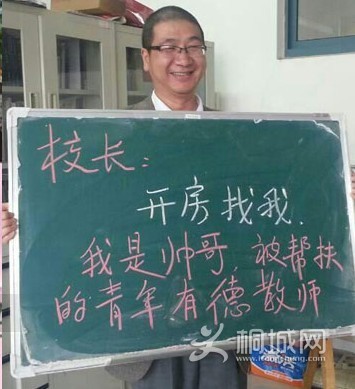 校长：
开房找我.
我是帅哥 被帮扶
的青年有德教师
桐城网